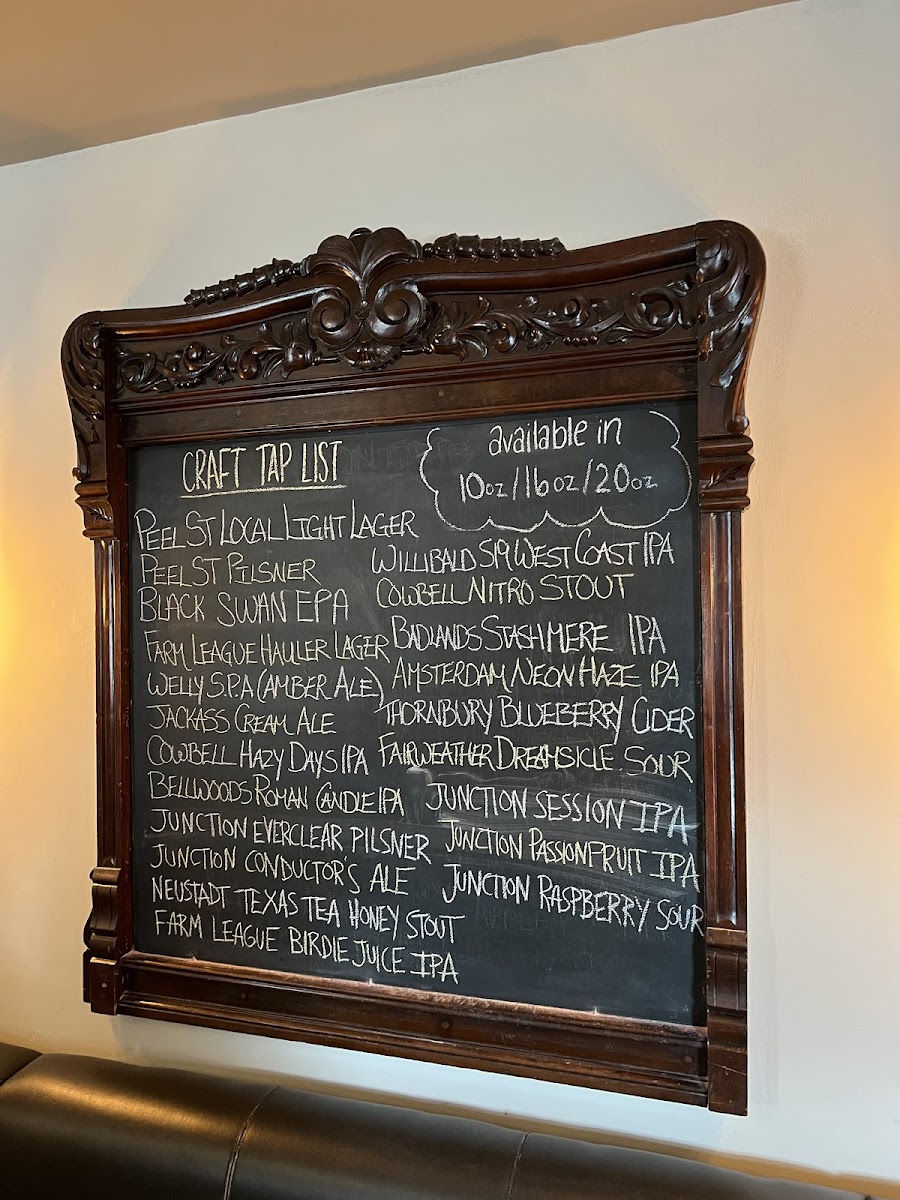 CRAFT TAP LIST
available in
10oz/16oz/20oz
PEEL ST LOCAL LIGHT LAGER
PEEL ST PILSNER
BLACK SWAN EPA
FARM LEAGUE HAULER LAGER
WELLY S.P.A (AMBER ALE)
JACKASS CREAM ALE
COWBELL HAZY DAYS IPA
BELLWOODS ROMAN CANDLE IPA
JUNCTION EVERCLEAR PILSNER
JUNCTION CONDUCTOR'S ALE
NEUSTADT TEXAS TEA HONEY STOUT
FARM LEAGUE BIRDIE JUICE IPA
WILLIBALD WEST COAST IPA
COWBELL NITRO STOUT
BADLANDS STASHMERE IPA
AMSTERDAM NEON HAZE IPA
THORNBURY BLUEBERRY CIDER
FAIRWEATHER DREAMSICLE SOUR
JUNCTION SESSION IPA
JUNCTION PASSIONFRUIT IPA
JUNCTION RASPBERRY SOUR